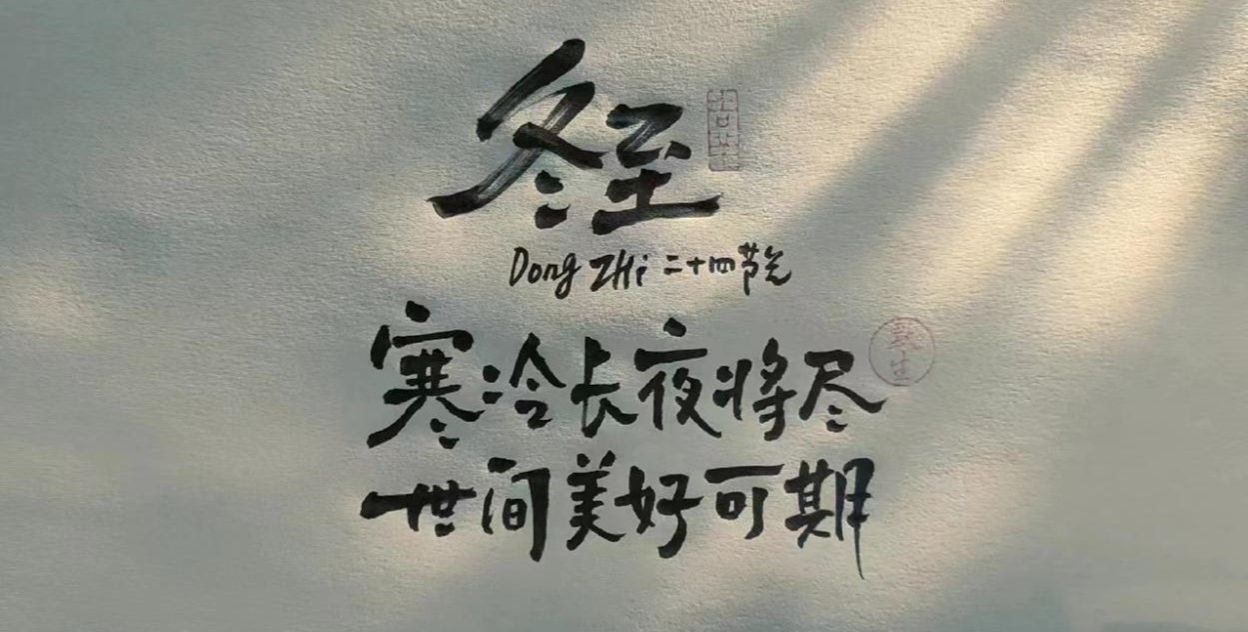 冬至
Dong ZHi 二十四节气
寒冷长夜将尽
世间美好可期